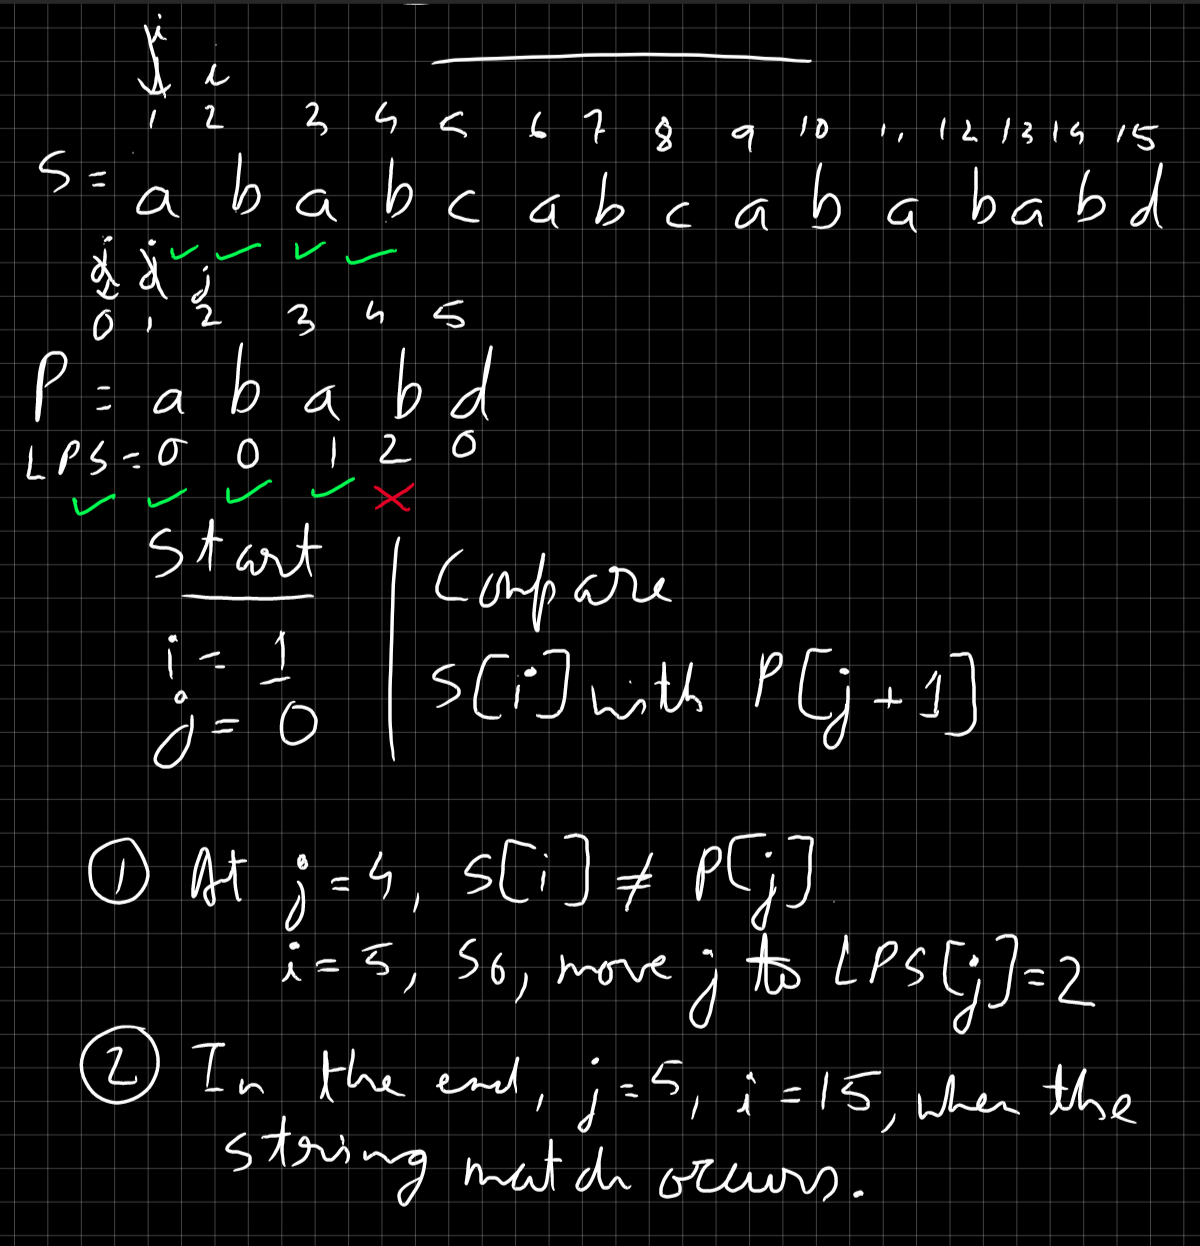 i
i
1 2 3 4 5 6 7 8 9 10 11 12 13 14 15
S = a b a b c a b c a b a b a b d
j j j
0 1 2 3 4 5
P = a b a b d
LPS = 0 0 1 2 0
Start
i = 1
j = 0
Compare
S[i] with P[j+1]
① At j=4, S[i] ≠ P[j]
i=5, So, move j to LPS[j]=2
② In the end, j=5, i=15, when the
string match occurs.